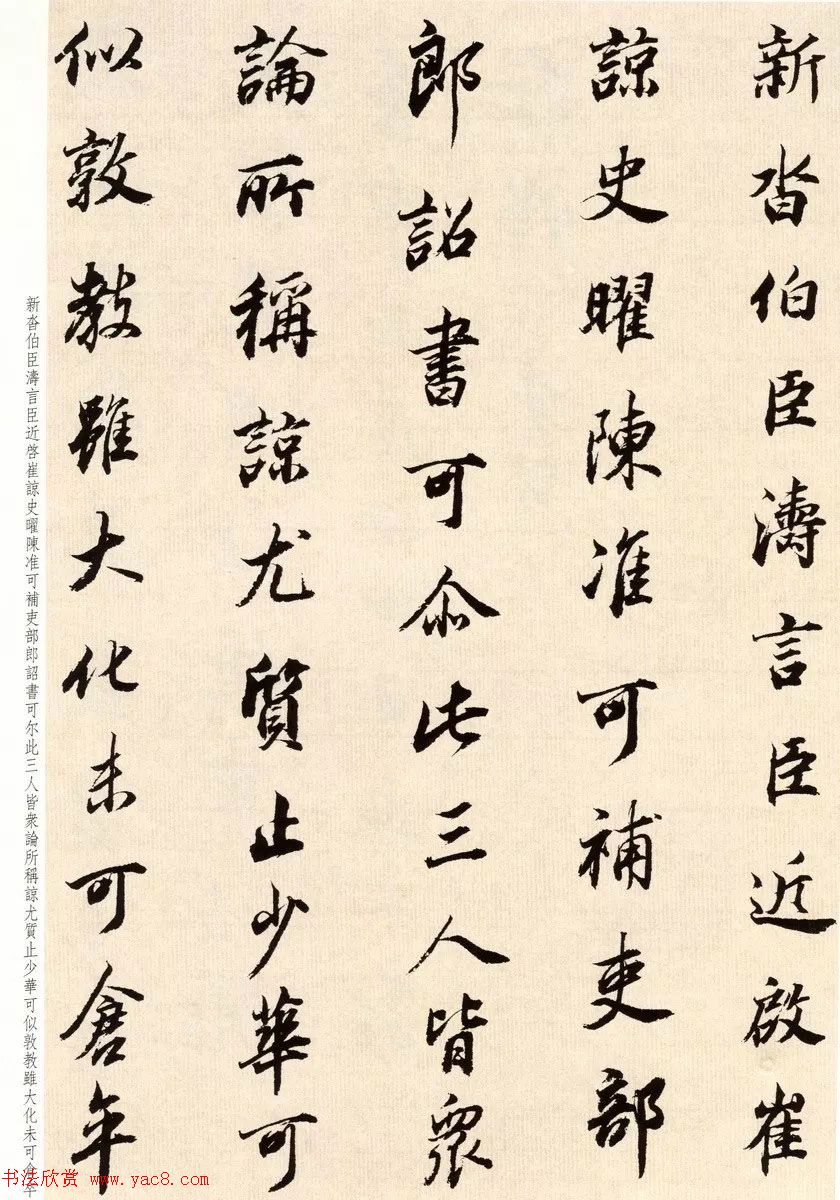 新沓伯臣濤言臣近啟崔
諒史曜陳准可補吏部
郎詔書可尒此三人皆衆
論所稱諒尤質止少華可
似敦教雖大化未可倉卒
新沓伯臣濤言臣近啓崔諒史曜陳准可補吏部郎詔書可尔此三人皆衆論所稱諒尤質止少華可似敦教雖大化未可倉卒
书法欣赏 www.yac8.com